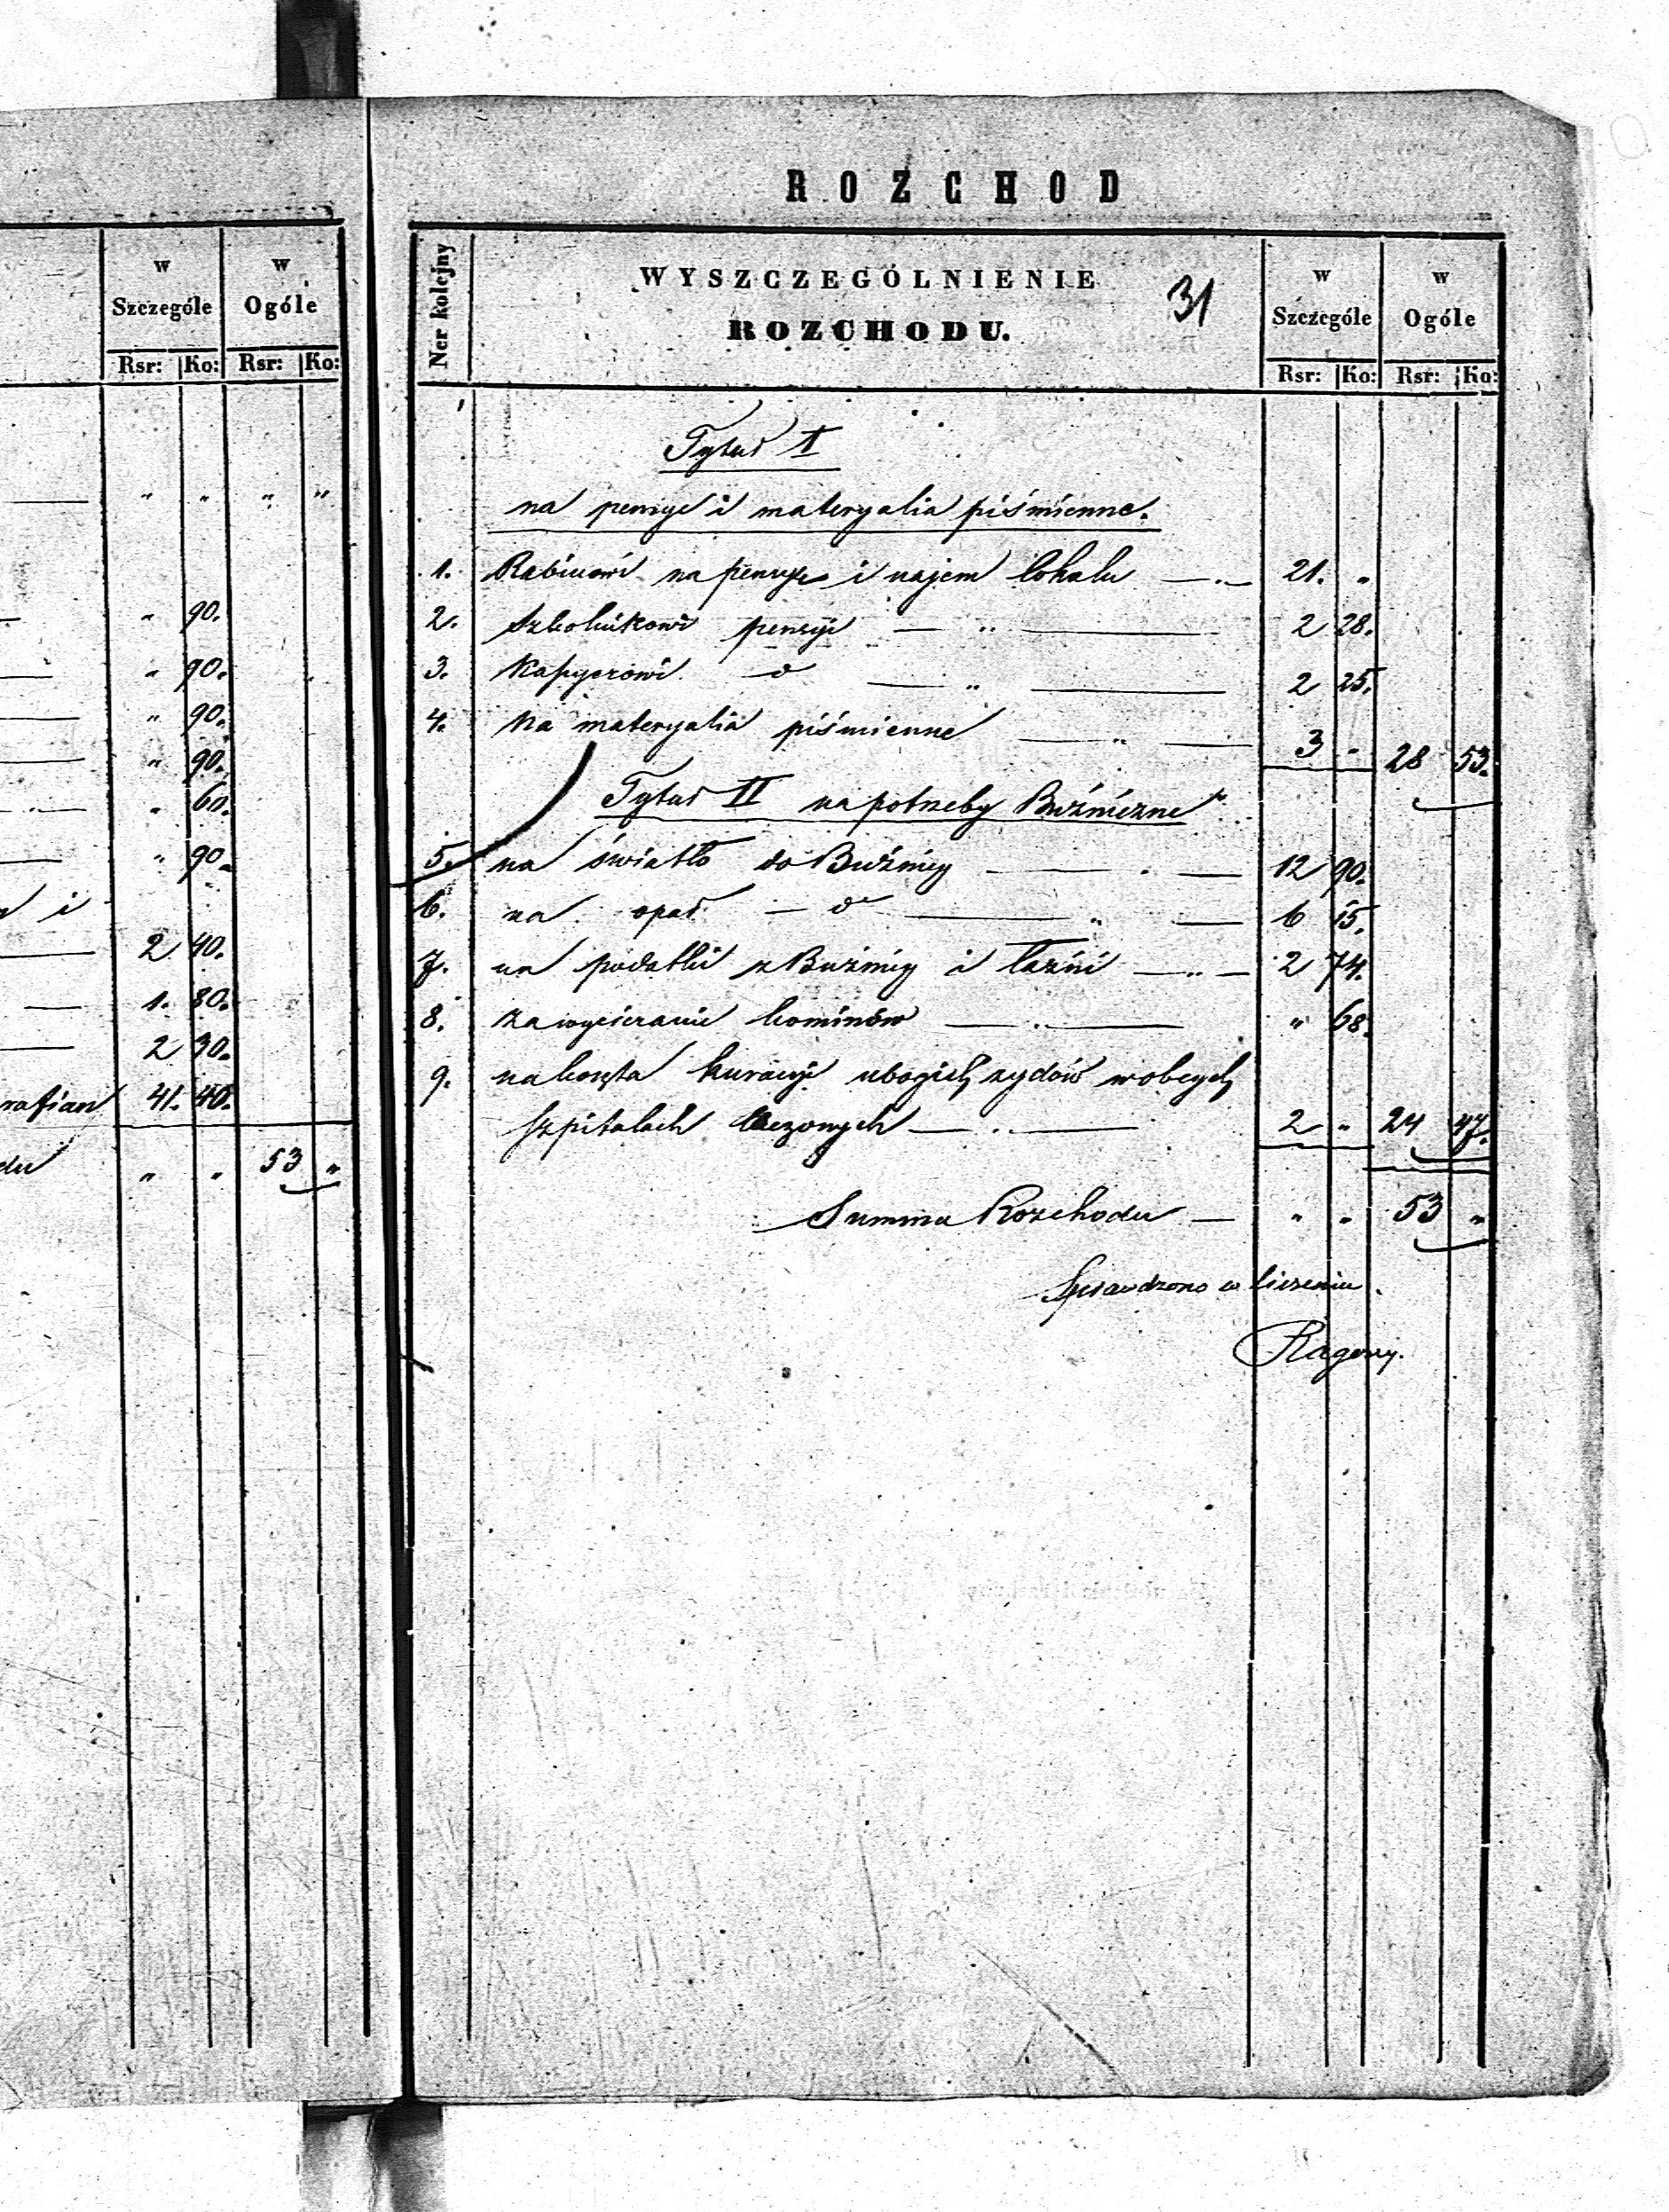 w w
Szczególe Ogóle
Rsr: Ko: Rsr: Ko:
" " " "
" 90.
" 90.
" 90.
" 90.
" 60.
" 90.
i
2 40.
1. 80.
2 30.
41. 40.
" " 53 "
ROZCHOD
Ner kolejny WYSZCZEGÓLNIENIE w w
31
ROZCHODU. Szczególe Ogóle
Rsr: Ko: Rsr: Ko:
Tytuł I
na pensye i materyalia piśmienne.
1. Rabinowi na pensye i najem lokalu 21. "
2. Szkolnikowi pensyi " 2 28.
3. Kapyerowi d " 2 25.
4. Na materyalia piśmienne " 3 " 28 53.
Tytuł II na potrzeby Bóżniczne
5. na światło do Bóżnicy 12 90.
6. na opał d " 6 15.
7. na podatki z Bóżnicy i łaźni " 2 74.
8. za wycieranie kominów " " 68.
9. na koszta kuracyi ubogich żydów w obcych
szpitalach leczonych 2 " 24 47.
Summa Rozchodu " " 53 "
Sprawdzono w liczeniu.